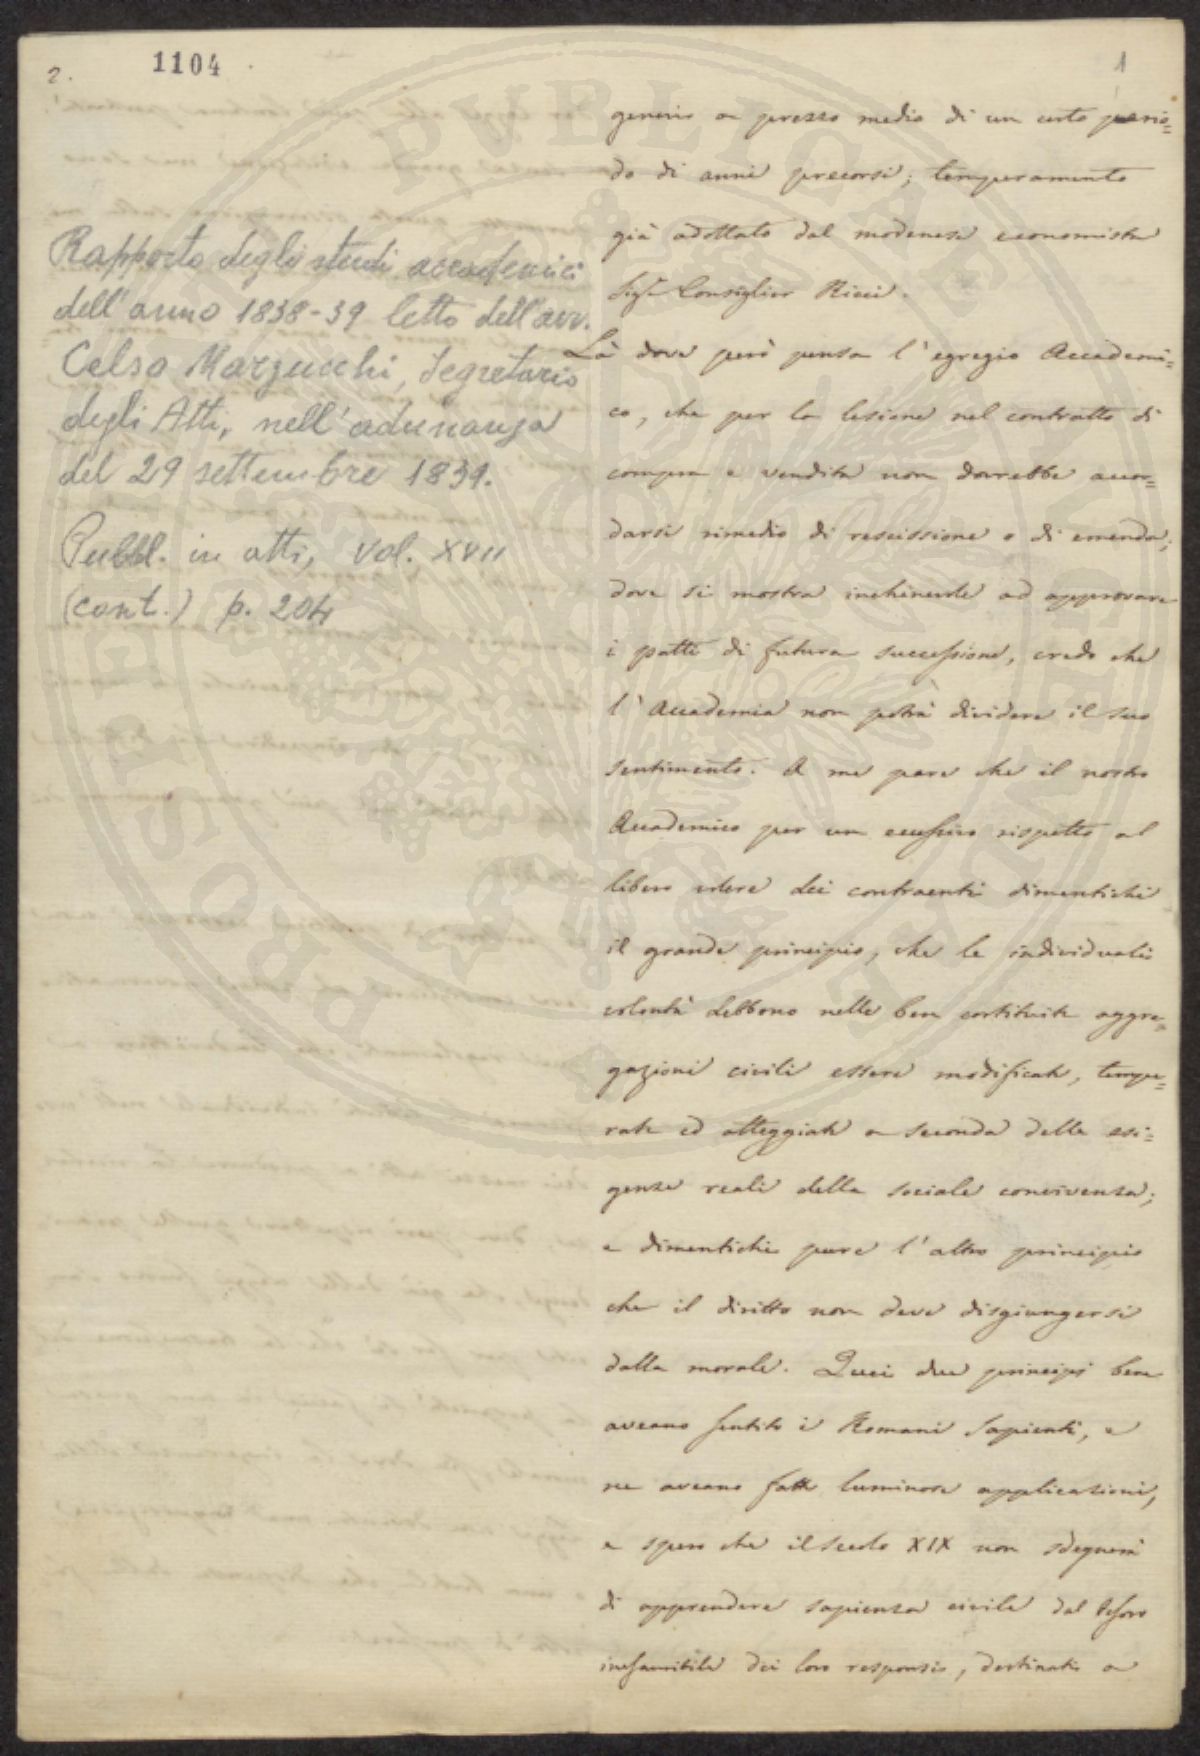 2.
1104
1
Rapporto degli studi accademici
dell'anno 1838-39 letto dell'avv.
Celso Marzucchi, Segretario
degli Atti, nell'adunanza
del 29 settembre 1839.
Pubbl. in atti, vol. XVII
(cont.) p. 204
genere a prezzo medio di un certo perio=
do di anni precorsi; temperamento
già adottato dal modenese economista
Sigr. Consiglier Ricci.
Là dove però pensa l'egregio Accademi=
co, che per la lesione nel contratto di
compra e vendita non dovrebbe accor=
darsi rimedio di rescissione o di emenda;
dove si mostra inchinevole ad approvare
i patti di futura successione, credo che
l'Accademia non potrà dividere il suo
sentimento. A me pare che il nostro
Accademico per un eccessivo rispetto al
libero volere dei contraenti dimentichi
il grande principio, che le individuali
volontà debbono nelle ben costituite aggre=
gazioni civili essere modificate, tempe=
rate ed atteggiate a seconda delle esi=
genze reali della sociale convivenza;
e dimentichi pure l'altro principio
che il diritto non deve disgiungersi
dalla morale. Quei due principj bene
aveano sentito i Romani Sapienti, e
ne aveano fatte luminose applicazioni,
e spero che il secolo XIX non sdegnerà
di apprendere sapienza civile dal tesoro
inesauribile dei loro responsi, destinati a
PVBLICAE
PROSPERITATI